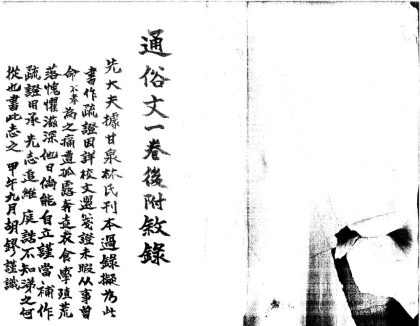 通俗文一卷後附敘錄
先大夫據甘泉林氏刊本過錄擬為此
書作疏證因詳校文選箋證未暇從事曾
命不孝為之痛遭孤露奔走衣食學殖荒
落愧懼滋深他日倘能自立謹當補作
疏證田承先志追維庭誥不知涕之何
從也書此志之 甲午九月胡鏐謹識